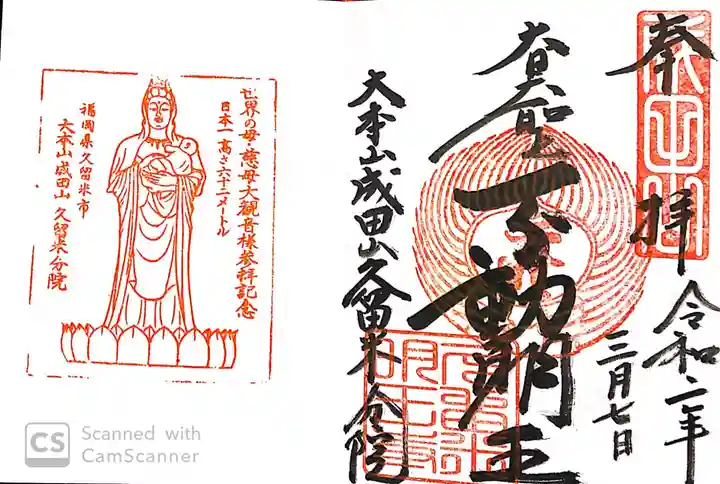 奉拝
令和二年
三月七日
大日大聖不動明王
大本山成田山久留米分院
世界の母・慈母大観音様参拝記念
日本一高さ六十二メートル
福岡県久留米市
大本山成田山 久留米分院
CS Scanned with
CamScanner